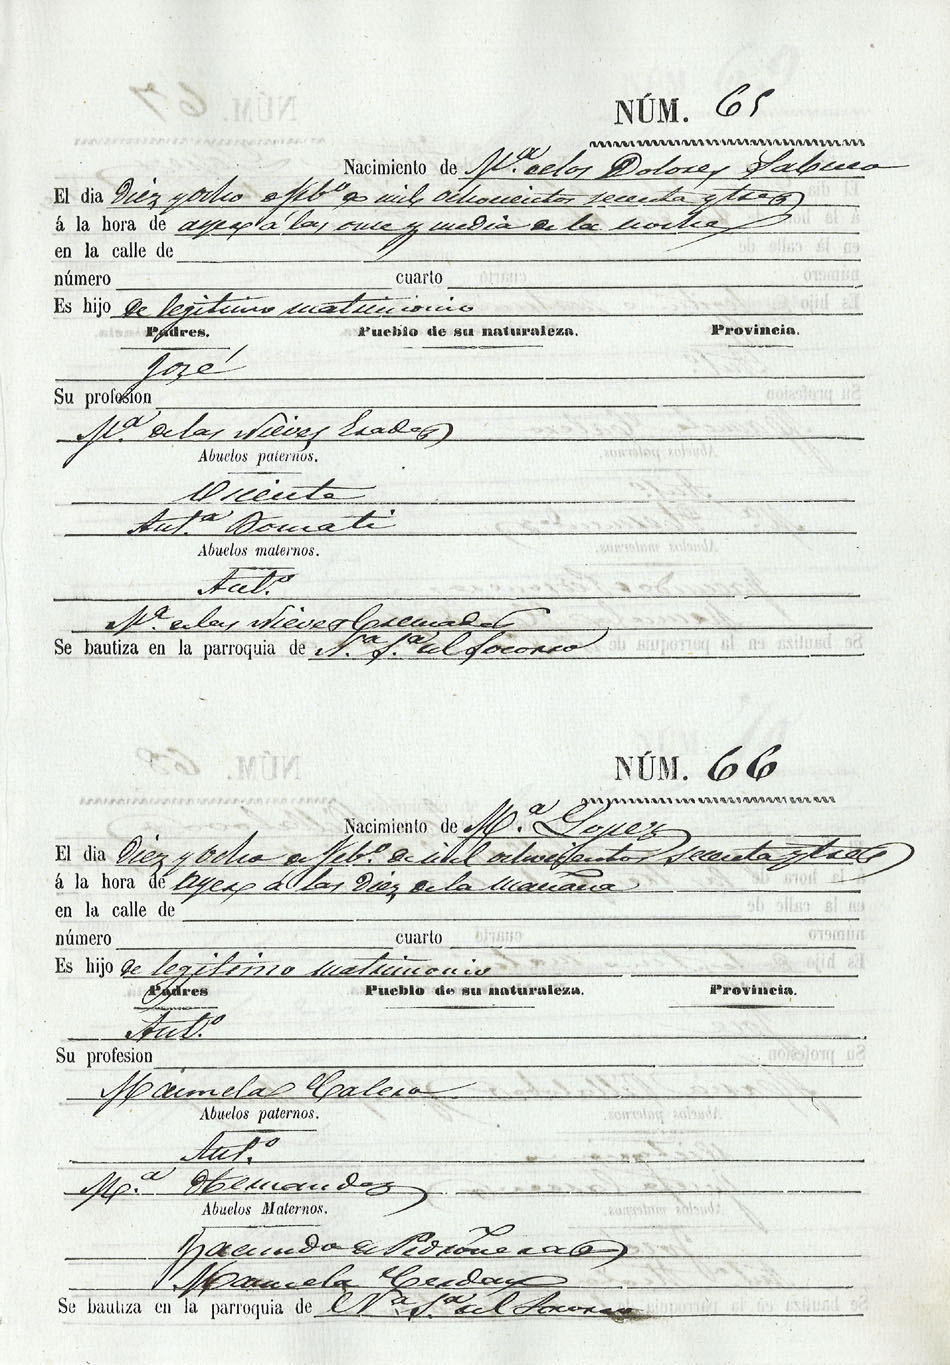 NÚM. 65
Nacimiento de Mª de los Dolores
El dia Diez y ocho de Febº de mil ochocientos secenta y tres
á la hora de ayer á las once y media de la noche
en la calle de
número cuarto
Es hijo de legitimo matrimonio
Padres. Pueblo de su naturaleza. Provincia.
José
Su profesion
Mª de las Nieves
Abuelos paternos.
Vicente
Antª
Abuelos maternos.
Antº
Mª de las Nieves
Se bautiza en la parroquia de Nª Sª del Socorro
NÚM. 66
Nacimiento de Mª Lopez
El dia Diez y ocho de Febº de mil ochocientos secenta y tres
á la hora de ayer á las Diez de la mañana
en la calle de
número cuarto
Es hijo de legitimo matrimonio
Padres Pueblo de su naturaleza. Provincia.
Antº
Su profesion
Manuela Calero
Abuelos paternos.
Antº
Mª Hernandez
Abuelos Maternos.
Facundo de
Manuela Cerdan
Se bautiza en la parroquia de Nª Sª del Socorro